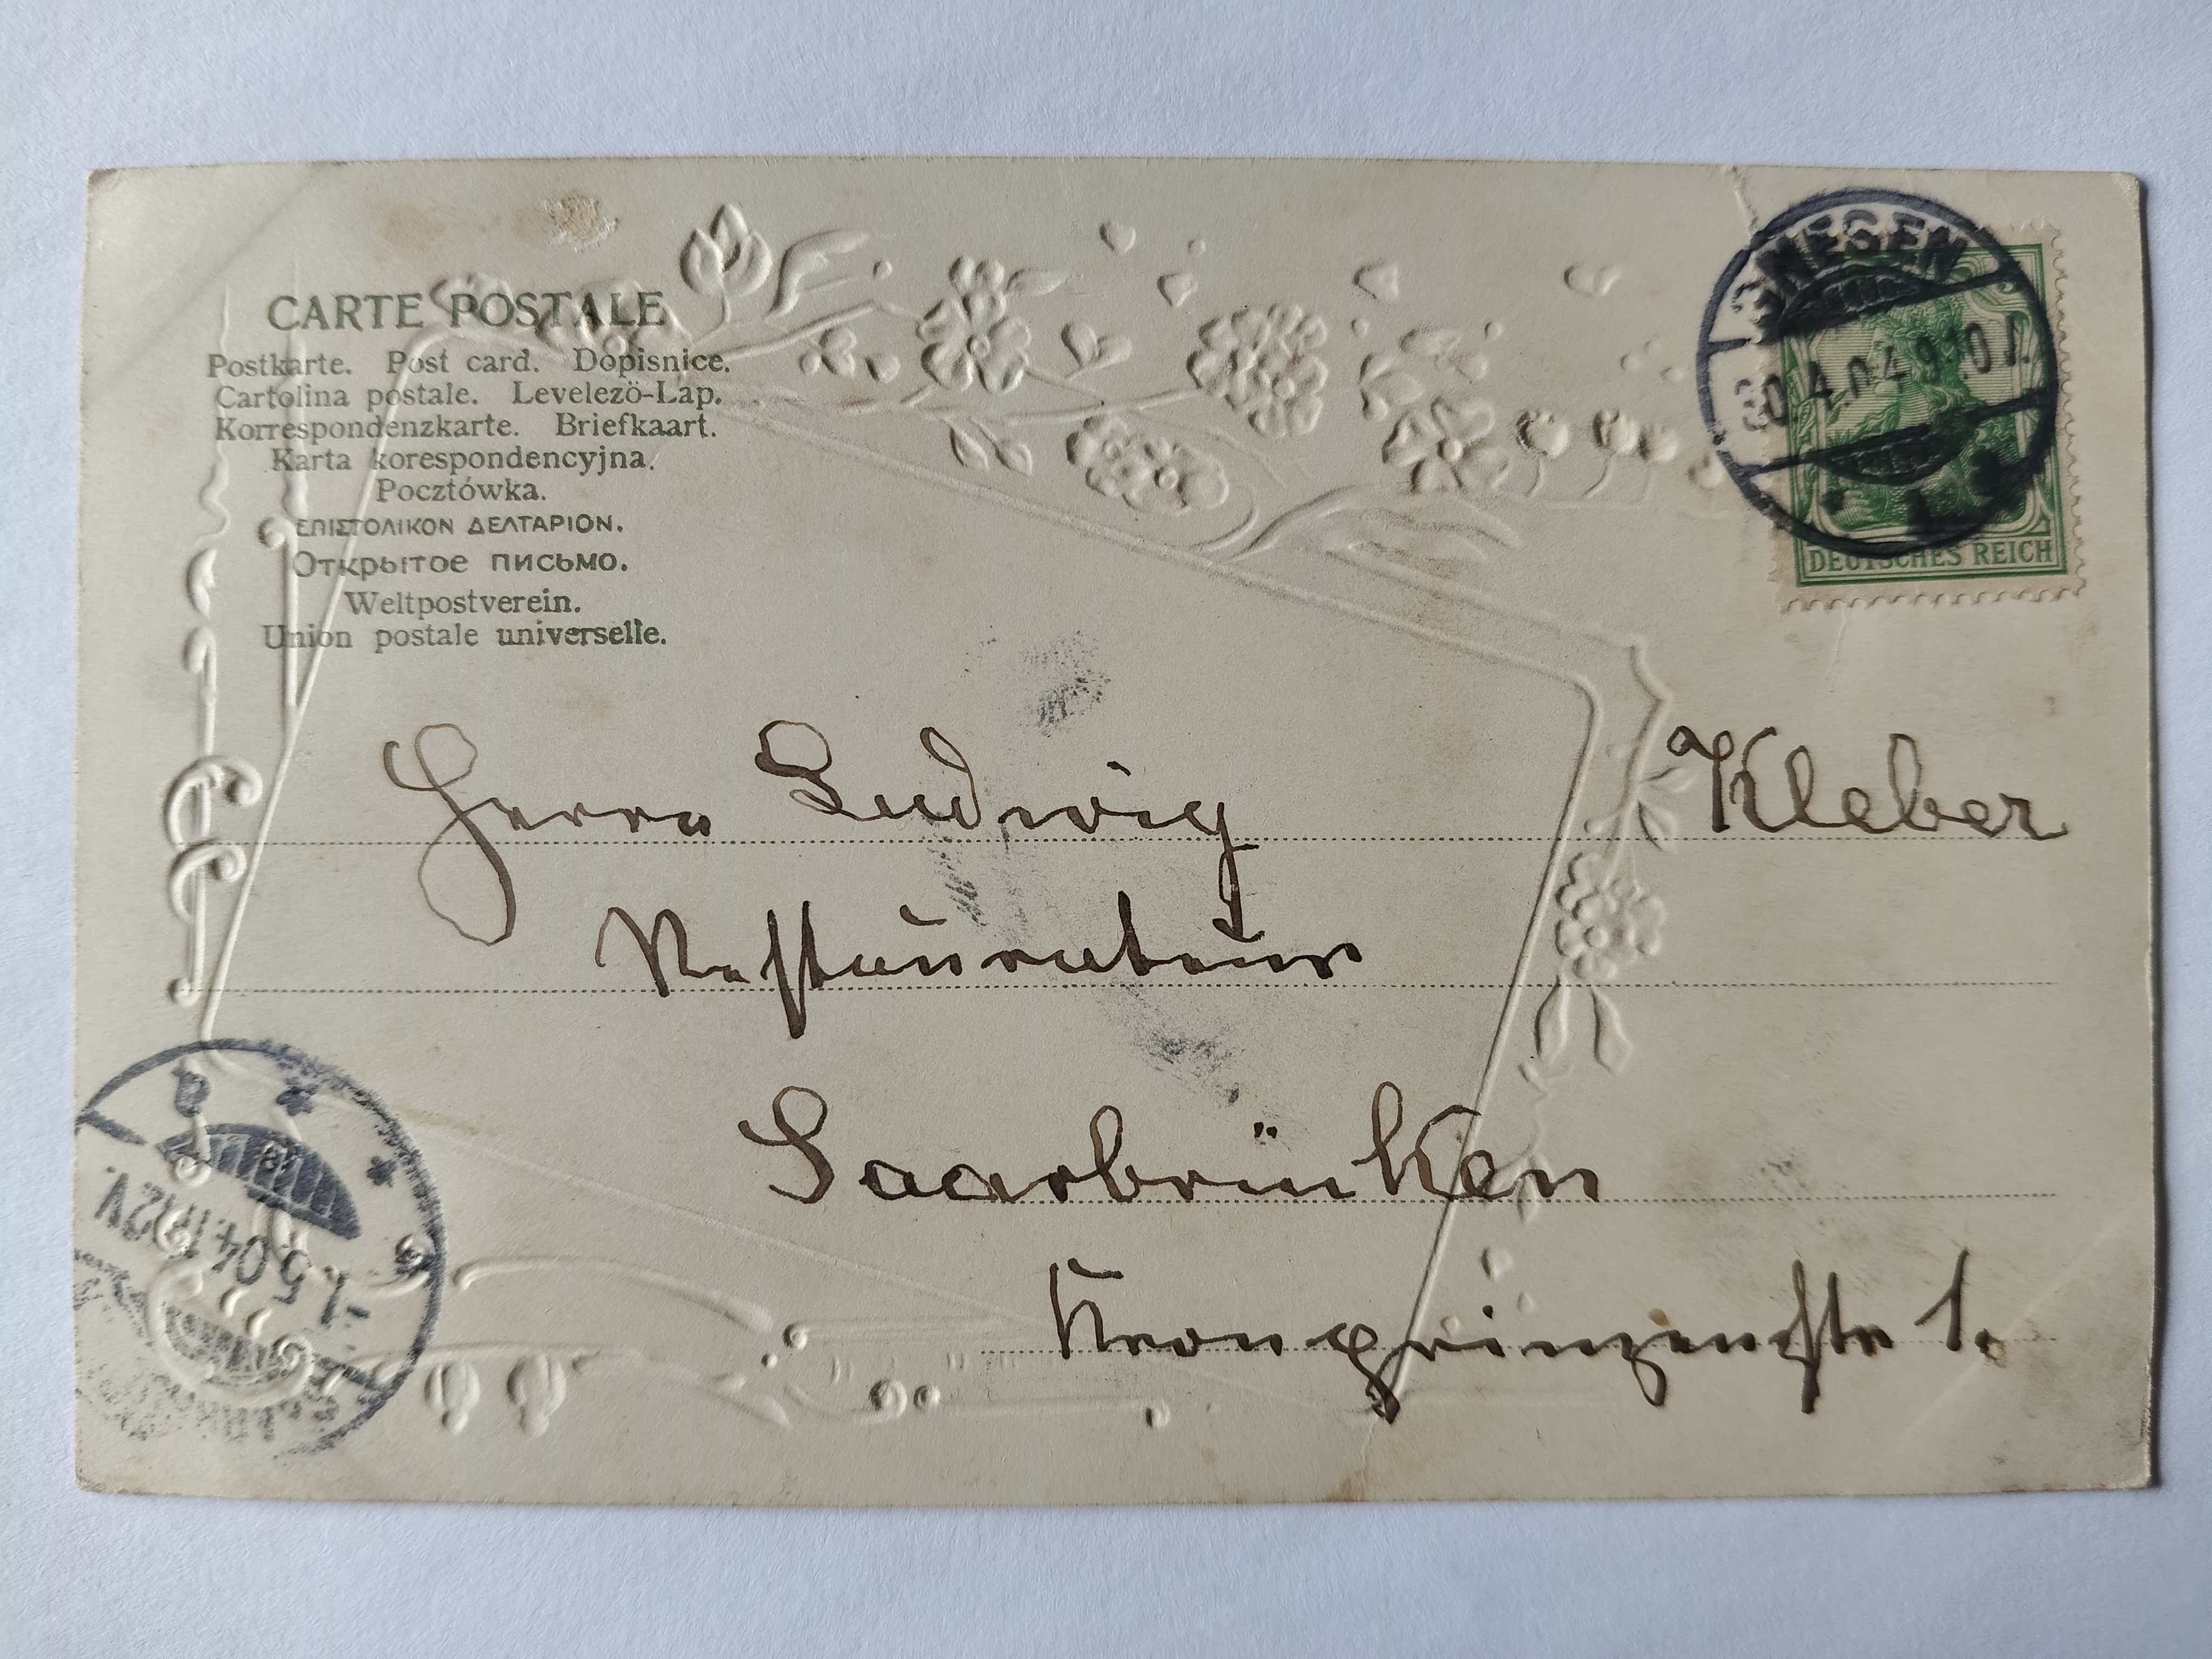 CARTE POSTALE
Postkarte. Post card. Dopisnice.
Cartolina postale. Levelező-Lap.
Korrespondenzkarte. Briefkaart.
Karta korespondencyjna.
Pocztówka.
ΕΠΙΣΤΟΛΙΚΟΝ ΔΕΛΤΑΡΙΟΝ.
Открытое письмо.
Weltpostverein.
Union postale universelle.
GNESEN
30.4.04.9-10V.
DEUTSCHES REICH
Herrn Ludwig Kleber
Restaurateur
Saarbrücken
Kronprinzenstr 1.
1.5.04.11-12V.